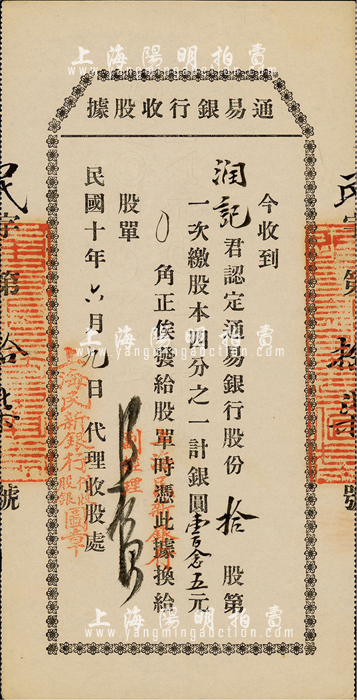 上海陽明拍賣
www.yangmingauction.com
通易銀行收股據
今收到
润記君認定通易銀行股份拾股第
一次繳股本四分之一計銀圓壹百念五元
0角正俟發給股單時憑此據換給
股單
民國十年六月九日代理收股處
上海民新銀行代收股銀圖章
上海民新銀行
副經理
民字第拾柒號
上海陽明拍賣
www.yangmingauction.com
上海陽明拍賣
www.yangmingauction.com